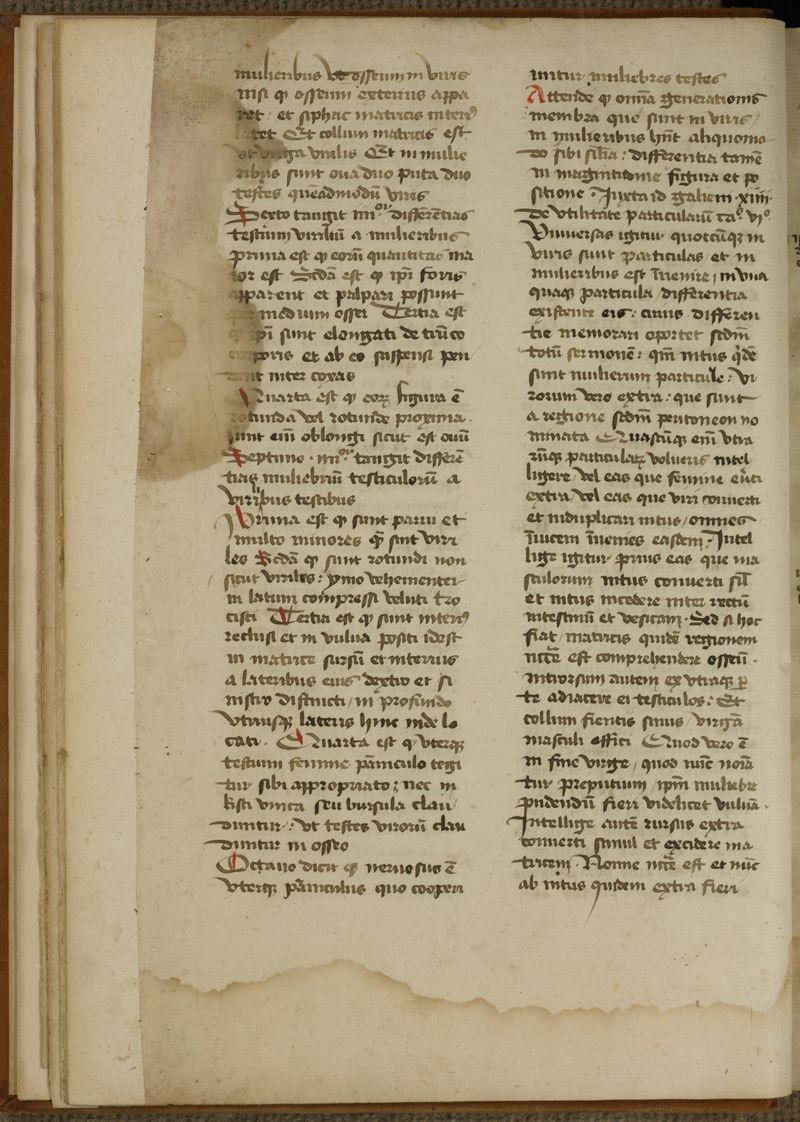 mulieribus ut osseum in viris
nisi qꝫ osseum exterius appa
ret · et siphac matricis interiꝰ
latet Et collum matricis est
ut virga virilis Et in mulie
ribus sunt oua duo puta duo
testes quēadmodū viris
Sexto tangit differētias
testium viriliū a mulieribus
prima est qꝫ eorū quantitas ma
ior est Scđa est qꝫ ip̄i foris
apparent et palpari possunt
medium ossei Tertia est
qꝫ ip̄i sunt elongati de trūco
corporis et ab eo suspensi pen
dent inter coxas
Quarta est qꝫ eoꝝ figura ē
rotunda vel rotunde proxima
sunt em̄ oblongi sicut est ouū
Septimo · tangit differē
tias muliebriū testiculorū a
viribus testibus
Prima est qꝫ sunt parui et
multo minores qꝫ̄ sint viri
les Scđa qꝫ sunt rotundi non
sicut viriles : ymo vehementer
in latum compressi veluti tro
cisci Tertia est qꝫ sunt interiꝰ
reclusi et in vulua positi idest
in matrice sursū et interius
a lateribus eius dextro et si
nistro distincti / in profundo
vtriusqꝫ lateris hinc inde lo
cati · Quarta est qꝫ vterqꝫ
testium femine pāniculo tegi
tur sibi appropriato ; nec in
kisti vnica seu bursula clau
duntur : vt testes virorū clau
duntur in osseo
Octauo dicit qꝫ neruosus ē
vterqꝫ pāniculus quo cooperi
untur muliebres testes
Attende qꝫ om̄ia generationis
membra que sunt in viris /
in mulieribus hn̄t aliquomo
do sibi sil̄ia : differentia tamē
in magnitudine figura et po
sitione · Juxta id galieni · xiiij ·
De vtilitate particularū ca° vj°
Vniuersas igitur quotcūqꝫ in
viris sunt particulas et in
mulieribus est īuenire / in vna
quaqꝫ particula / differentia
existente eis : cuius differen
tie memorari oportet scđm
totū sermonē : qm̄ intus q̇dē
sunt mulierum particule : vi
rorum vero extra : que sunt
a regione scđm peritoneon no
minata Quascūqꝫ em̄ vtra
rūqꝫ particulaꝝ volueris intel
ligere vel eas que femine
extra vel eas que viri conuerti
et induplicari intus / omnes
īuicem īuenies easdem · Intel
lige igitur prius eas que ma
sculorum intus conuerti sil̄
et intus incedere inter rectū
intestinū et vesicam · Sed si hoc
fiat / matricis quidē regionem
nēcē est comprehendere osseū ·
introrsum autem ex vtraqꝫ p̄
te adiacere ei testiculos : Et
collum fientis sinus virgā
masculi effici Quod vero ē
in fine virge / quod nūc noīā
tur preputium / ip̄m muliebre
pudendū fieri videlicet vuluā ·
Intellige autē rursus extra
conuerti simul et excidere ma
tricem · Nonne nēcē est et nūc
ab intus quidem extra fieri